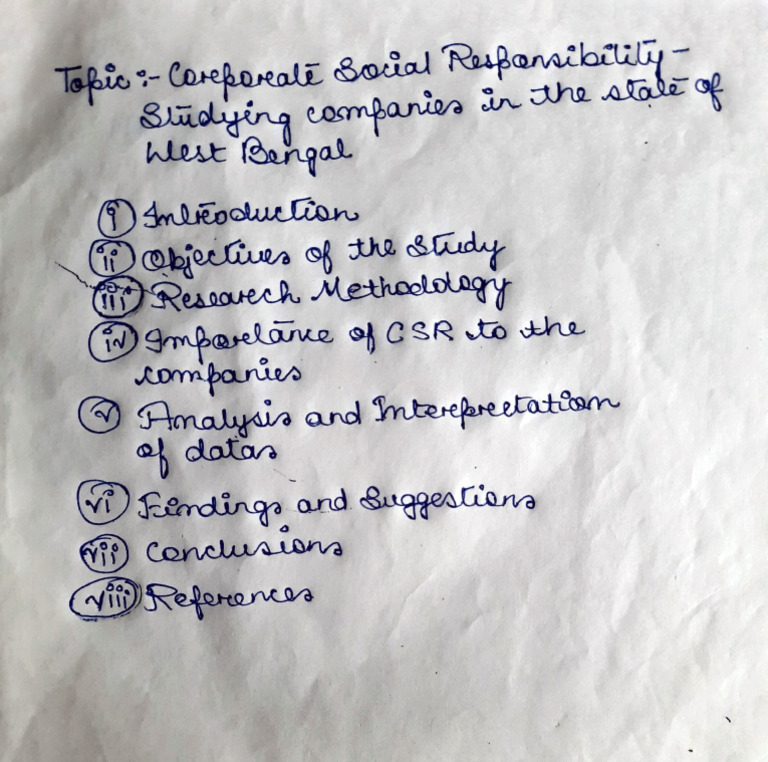 Topic :- Corporate Social Responsibility -
Studying companies in the state of
West Bengal
i Introduction
ii Objectives of the Study
iii Research Methodology
iv Importance of CSR to the
companies
v Analysis and Interpretation
of datas
vi Findings and Suggestions
vii Conclusions
viii References